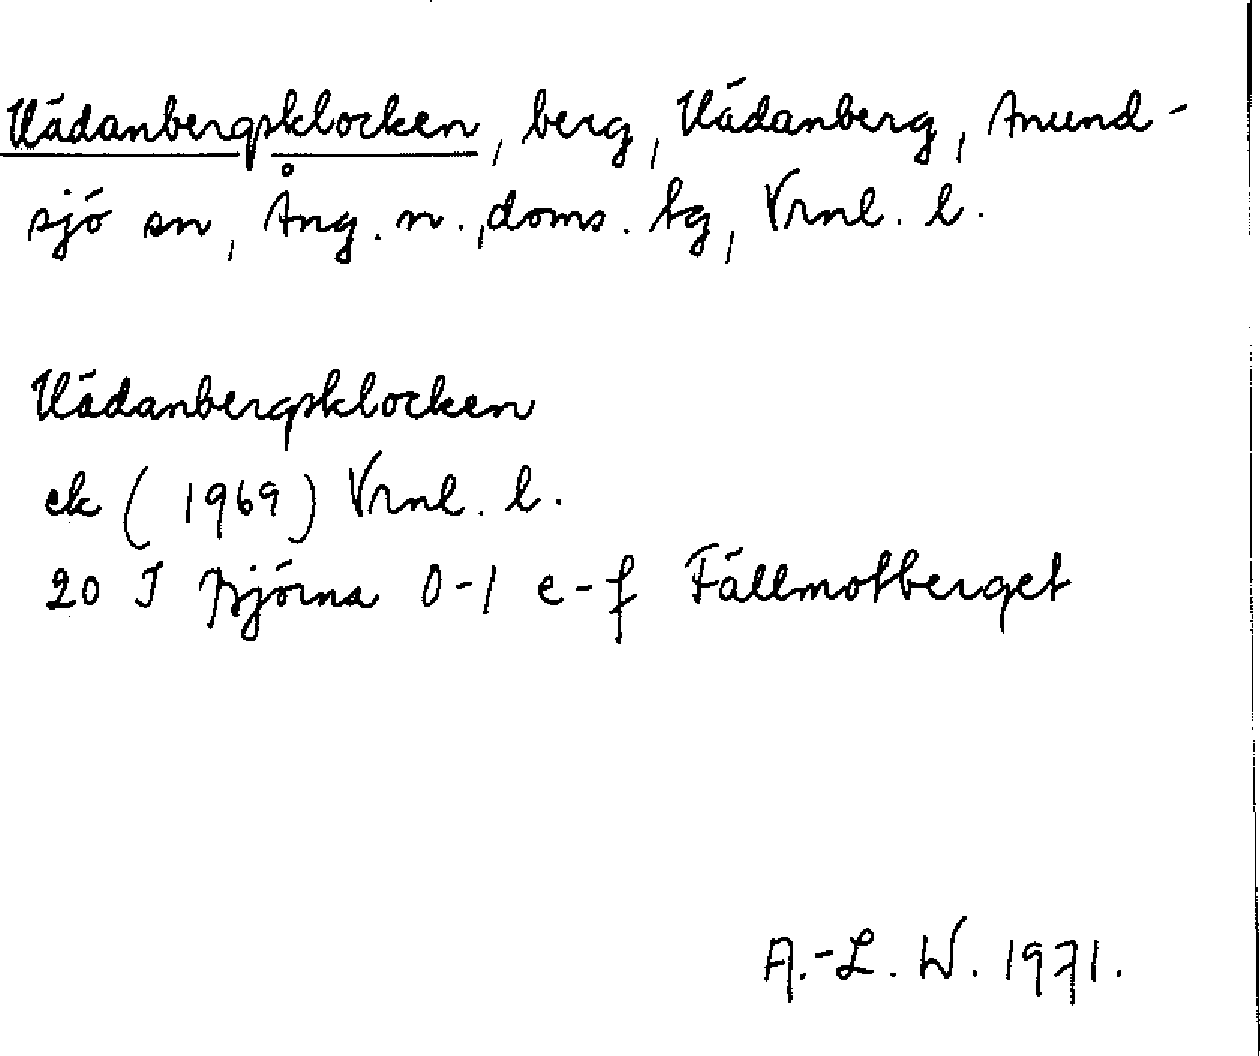 Hädanbergsklocken, berg, Hädanberg, Anund-
sjö sn, Ång. n., doms. tg, Vrnl. l.
Hädanbergsklocken
ek (1969) Vrnl. l.
20 J Björna 0-1 e-f Fällmotberget
A.-L. W. 1971.